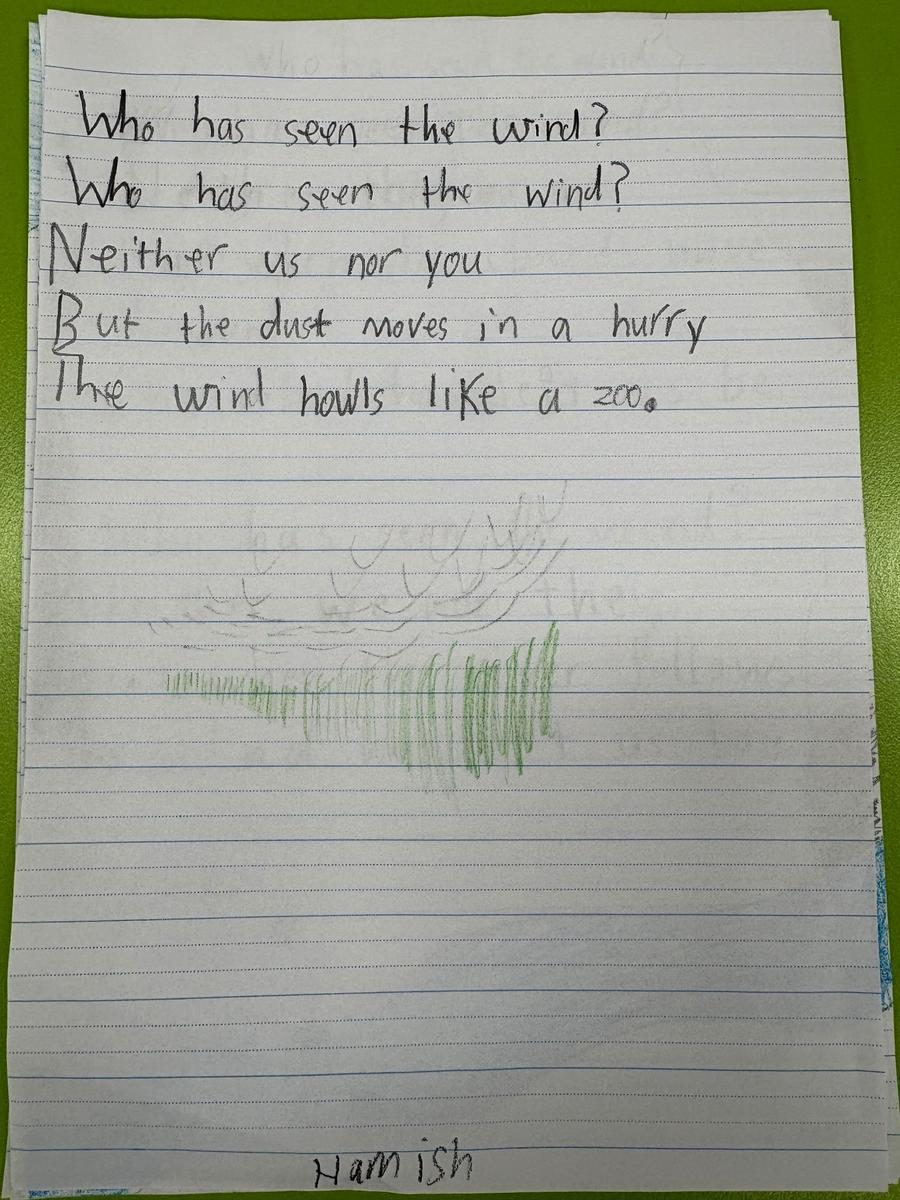 Who has seen the wind?
Who has seen the wind?
Neither us nor you
But the dust moves in a hurry
The wind howls like a zoo.
Hamish